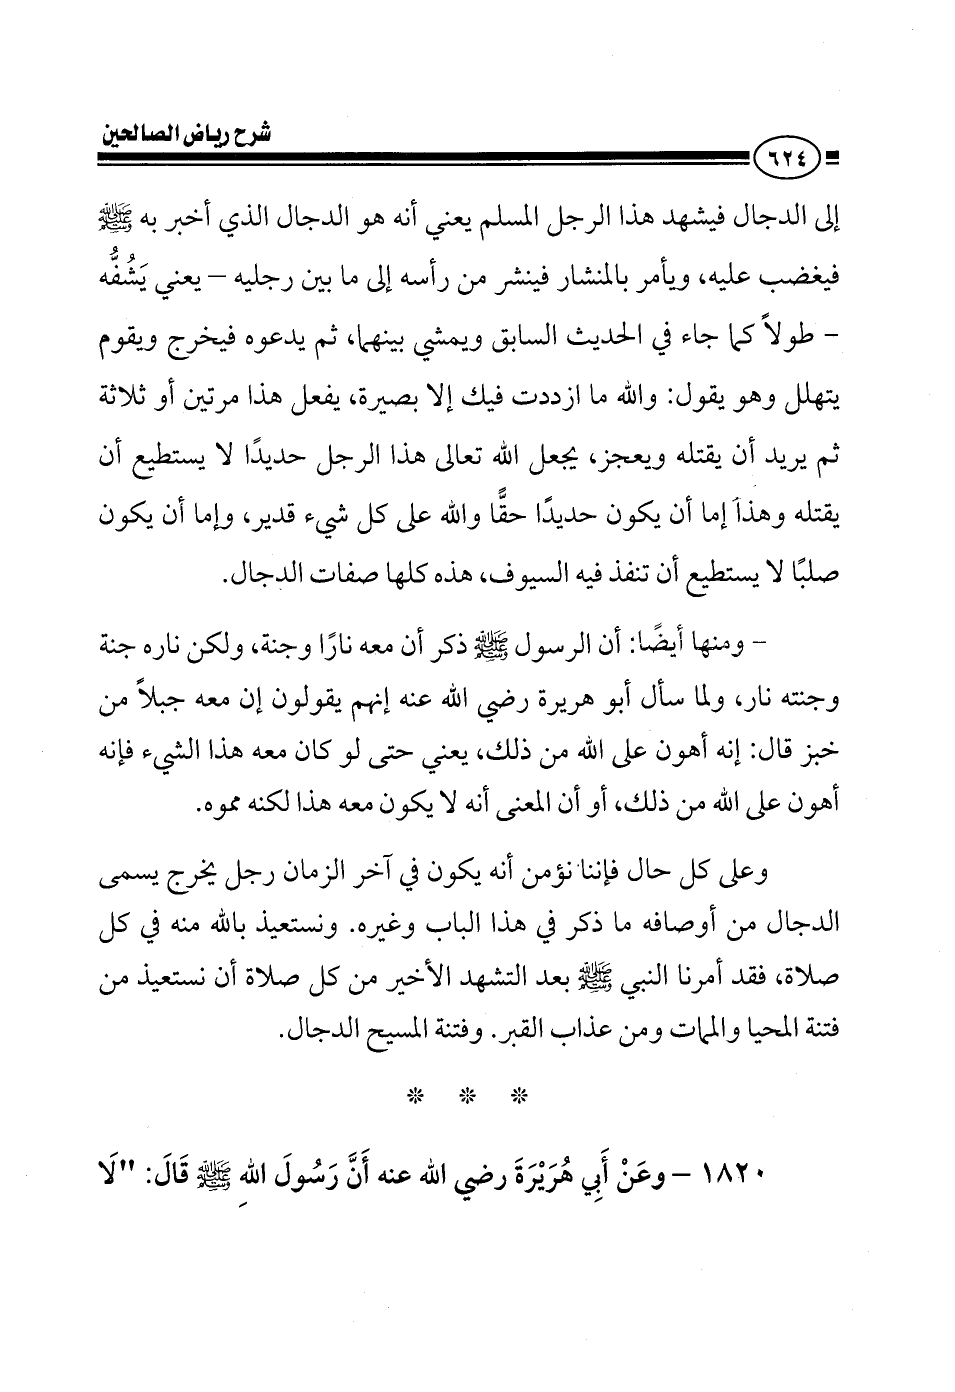 شرح رياض الصالحين
٦٢٤
إلى الدجال فيشهد هذا الرجل المسلم يعني أنه هو الدجال الذي أخبر به ﷺ
فيغضب عليه، ويأمر بالمنشار فينشر من رأسه إلى ما بين رجليه – يعني يَشُقُّه
– طولاً كما جاء في الحديث السابق ويمشي بينهما، ثم يدعوه فيخرج ويقوم
يتهلل وهو يقول: والله ما ازددت فيك إلا بصيرة، يفعل هذا مرتين أو ثلاثة
ثم يريد أن يقتله ويعجز، يجعل الله تعالى هذا الرجل حديدًا لا يستطيع أن
يقتله وهذا إما أن يكون حديدًا حقًّا والله على كل شيء قدير، وإما أن يكون
صلبًا لا يستطيع أن تنفذ فيه السيوف، هذه كلها صفات الدجال.
– ومنها أيضًا: أن الرسول ﷺ ذكر أن معه نارًا وجنة، ولكن ناره جنة
وجنته نار، ولما سأل أبو هريرة رضي الله عنه إنهم يقولون إن معه جبلاً من
خبز قال: إنه أهون على الله من ذلك، يعني حتى لو كان معه هذا الشيء فإنه
أهون على الله من ذلك، أو أن المعنى أنه لا يكون معه هذا لكنه مموه.
وعلى كل حال فإننا نؤمن أنه يكون في آخر الزمان رجل يخرج يسمى
الدجال من أوصافه ما ذكر في هذا الباب وغيره. ونستعيذ بالله منه في كل
صلاة، فقد أمرنا النبي ﷺ بعد التشهد الأخير من كل صلاة أن نستعيذ من
فتنة المحيا والممات ومن عذاب القبر. وفتنة المسيح الدجال.
* * *
١٨٢٠ – وعَنْ أَبِي هُرَيْرَةَ رضي الله عنه أَنَّ رَسُولَ اللهِ ﷺ قَالَ: "لَا